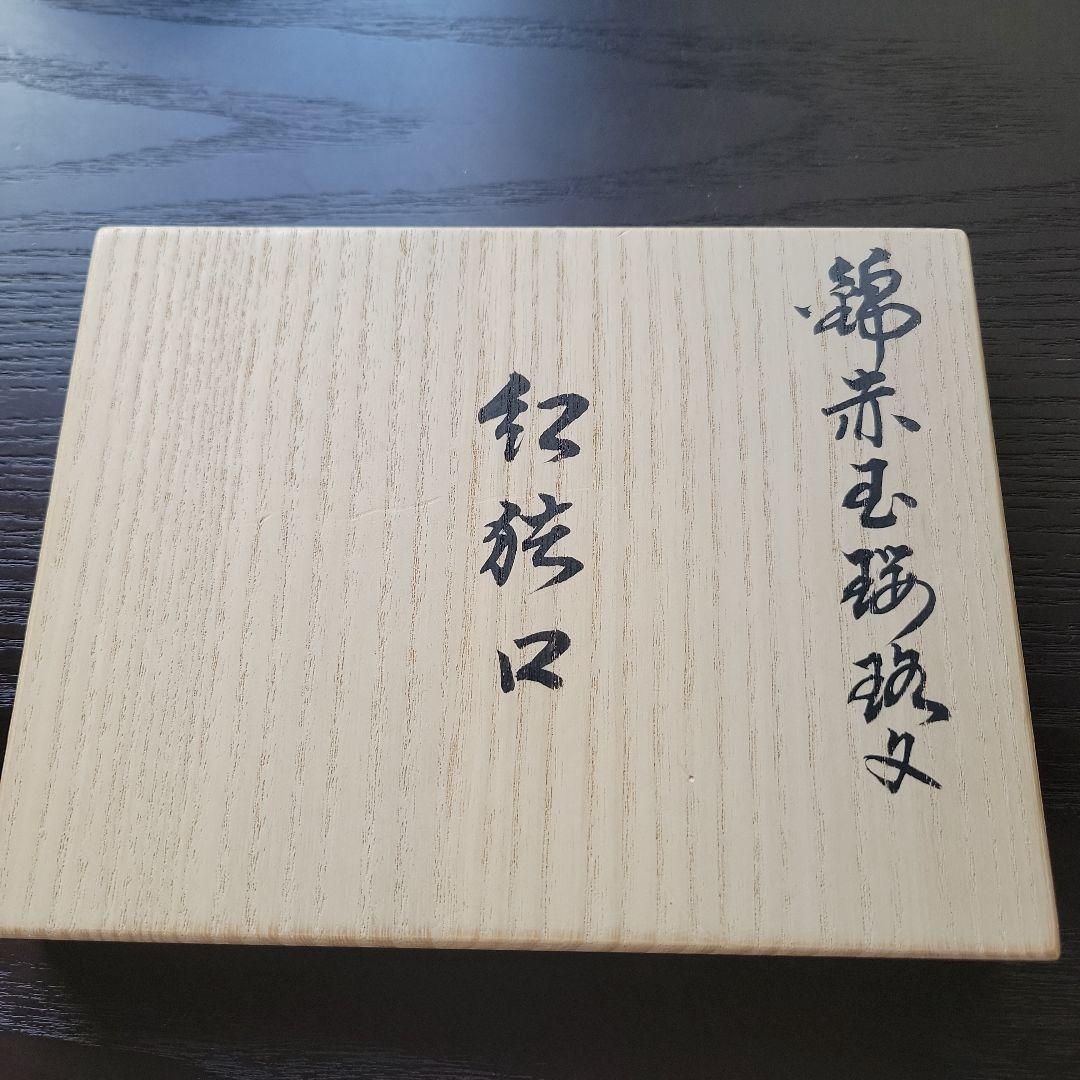 錦赤玉瓔珞文
組猪口